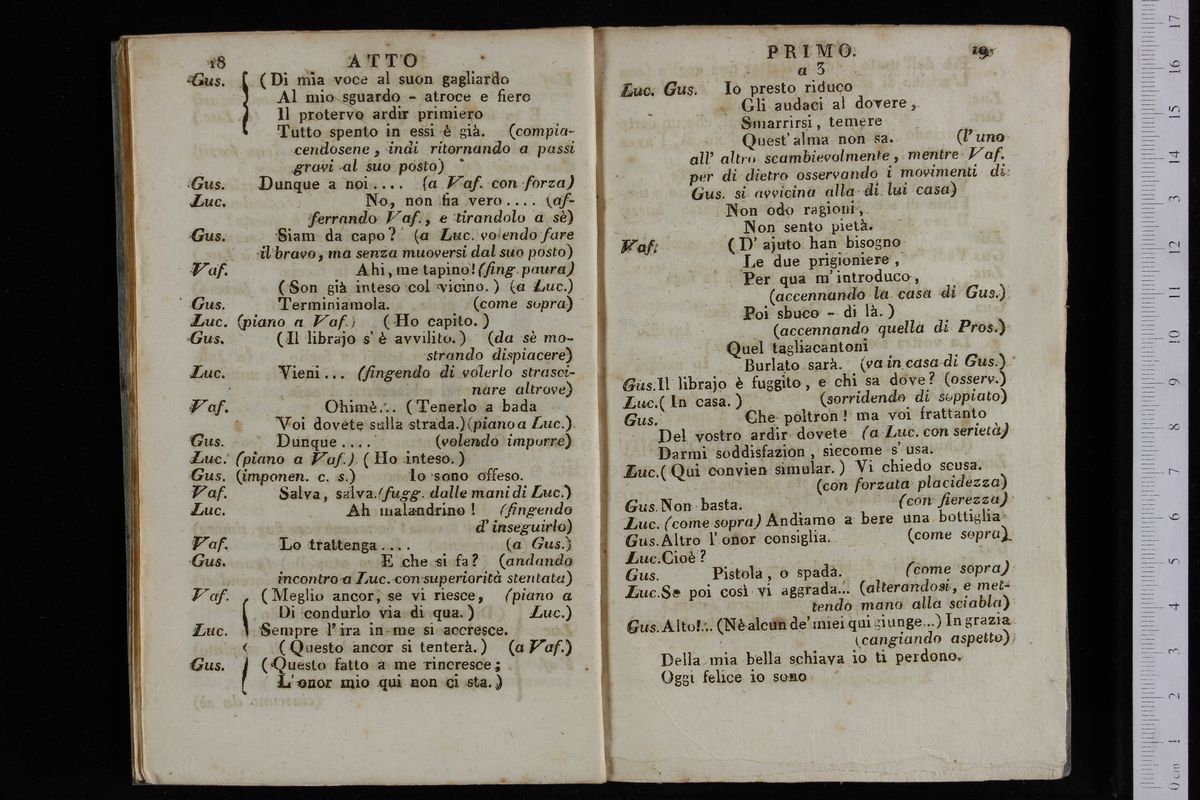 18 ATTO
Gus. (Di mia voce al suon gagliardo
Al mio sguardo - atroce e fiero
Il protervo ardir primiero
Tutto spento in essi è già. (compia-
cendosene, indi ritornando a passi
gravi al suo posto)
Gus. Dunque a noi.... (a Vaf. con forza)
Luc. No, non fia vero.... (af-
ferrando Vaf., e tirandolo a sè)
Gus. Siam da capo? (a Luc. volendo fare
il bravo, ma senza muoversi dal suo posto)
Vaf. Ahi, me tapino! (fing. paura)
(Son già inteso col vicino.) (a Luc.)
Gus. Terminiamola. (come sopra)
Luc. (piano a Vaf.) (Ho capito.)
Gus. (Il librajo s'è avvilito.) (da sè mo-
strando dispiacere)
Luc. Vieni... (fingendo di volerlo strasci-
nare altrove)
Vaf. Ohimè... (Tenerlo a bada
Voi dovete sulla strada.) (piano a Luc.)
Gus. Dunque.... (volendo imporre)
Luc. (piano a Vaf.) (Ho inteso.)
Gus. (imponen. c. s.) Io sono offeso.
Vaf. Salva, salva. (fugg. dalle mani di Luc.)
Luc. Ah malandrino! (fingendo
d'inseguirlo)
Vaf. Lo trattenga.... (a Gus.)
Gus. E che si fa? (andando
incontro a Luc. con superiorità stentata)
Vaf. (Meglio ancor, se vi riesce, (piano a
Di condurlo via di qua.) Luc.)
Luc. Sempre l'ira in me si accresce.
(Questo ancor si tenterà.) (a Vaf.)
Gus. (Questo fatto a me rincresce;
L'onor mio qui non ci sta.)
PRIMO. 19
a 3
Luc. Gus. Io presto riduco
Gli audaci al dovere,
Smarrirsi, temere
Quest'alma non sa. (l'uno
all' altro scambievolmente, mentre Vaf.
per di dietro osservando i movimenti di
Gus. si avvicina alla di lui casa)
Non odo ragioni,
Non sento pietà.
Vaf. (D'ajuto han bisogno
Le due prigioniere,
Per qua m'introduco,
(accennando la casa di Gus.)
Poi sbuco - di là.)
(accennando quella di Pros.)
Quel tagliacantoni
Burlato sarà. (va in casa di Gus.)
Gus. Il librajo è fuggito, e chi sa dove? (osserv.)
Luc. (In casa.) (sorridendo di soppiato)
Gus. Che poltron! ma voi frattanto
Del vostro ardir dovete (a Luc. con serietà)
Darmi soddisfazion, siccome s'usa.
Luc. (Qui convien simular.) Vi chiedo scusa.
(con forzata placidezza)
Gus. Non basta. (con fierezza)
Luc. (come sopra) Andiamo a bere una bottiglia
Gus. Altro l'onor consiglia. (come sopra)
Luc. Cioè?
Gus. Pistola, o spada. (come sopra)
Luc. Se poi così vi aggrada... (alterandosi, e met-
tendo mano alla sciabla)
Gus. Alto!.. (Nè alcun de' miei qui giunge...) In grazia
(cangiando aspetto)
Della mia bella schiava io ti perdono.
Oggi felice io sono